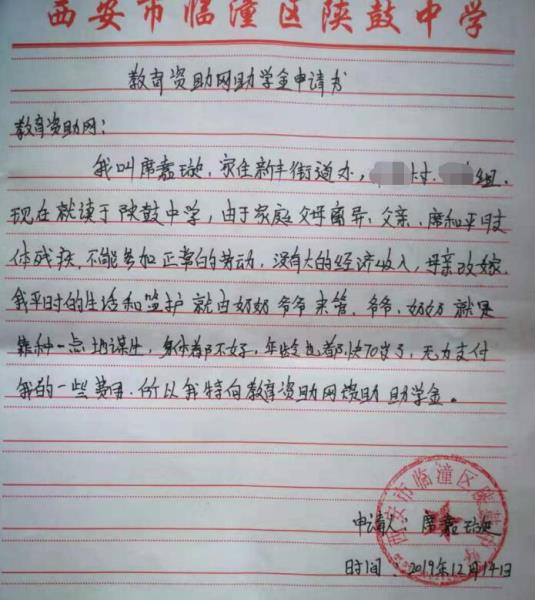 西安市临潼区陕鼓中学
教育资助网助学金申请书
教育资助网:
我叫席嘉璇,家住新丰街道办,村组,
现在就读于陕鼓中学,由于家庭父母离异、父亲、席和平肢
体残疾,不能参加正常的劳动,没有大的经济收入,母亲改嫁,
我平时的生活和监护就由奶奶爷爷来管,爷爷、奶奶就是
靠种一点地谋生,身体都不好,年龄也都快70岁了,无力支付
我的一些费用,所以我特向教育资助网资助助学金。
申请人:席嘉璇
时间:2019年12月14日
西安市临潼区陕鼓中学